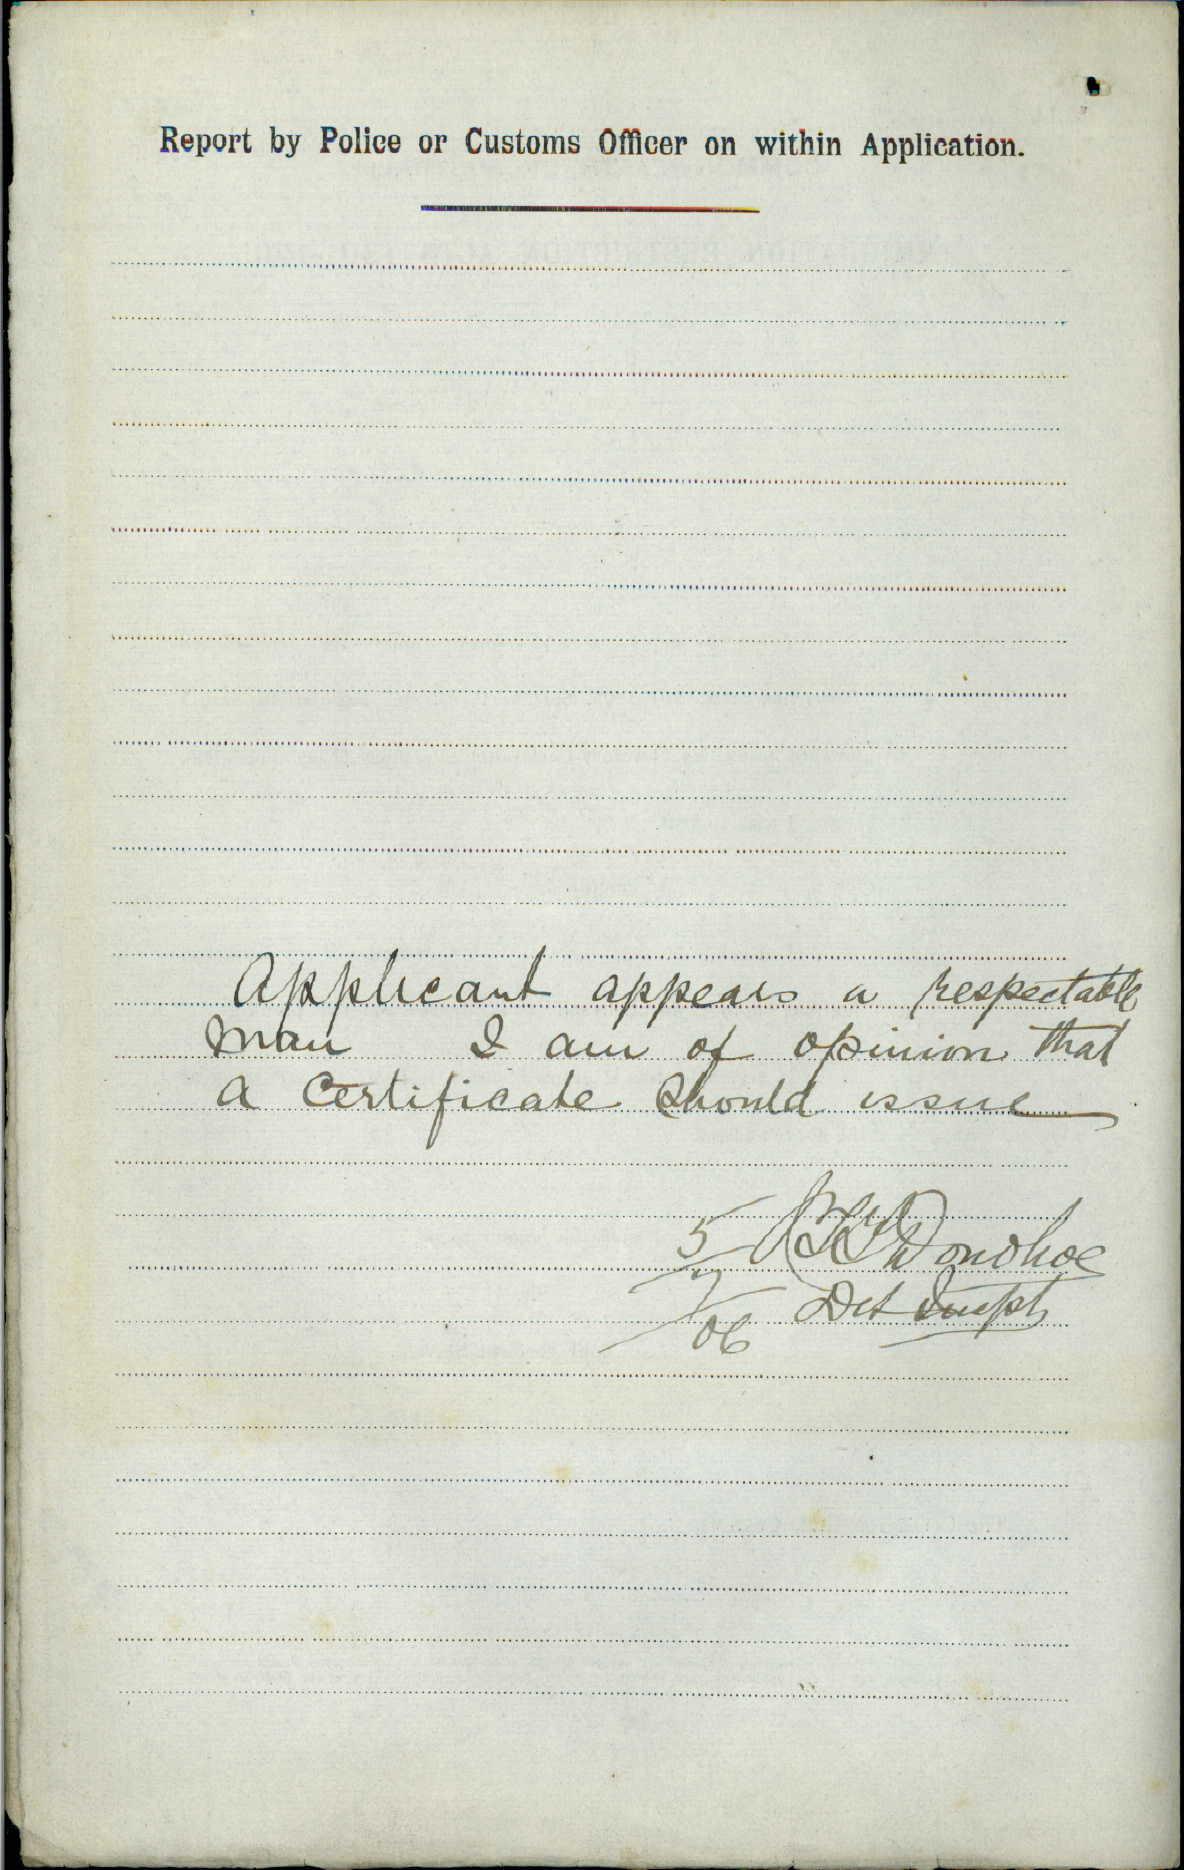 Report by Police or Customs Officer on within Application.
Applicant appears a respectable
man I am of opinion that
a Certificate should issue
Donohoe
5/7/06
Det